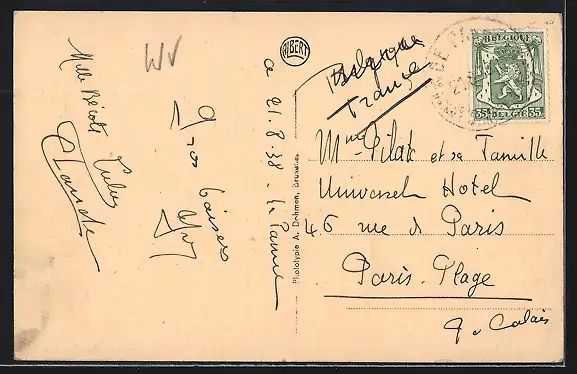 Mlle
WV
Claude
Gros baisers
21.8.38 - La Panne
ALBERT
Phototypie A. Dohmen, Bruxelles
Belgique
France
BELGIQUE
35 BELGIË 35
Mme Pilat et sa Famille
Universel Hotel
46 rue de Paris
Paris-Plage
P. de Calais